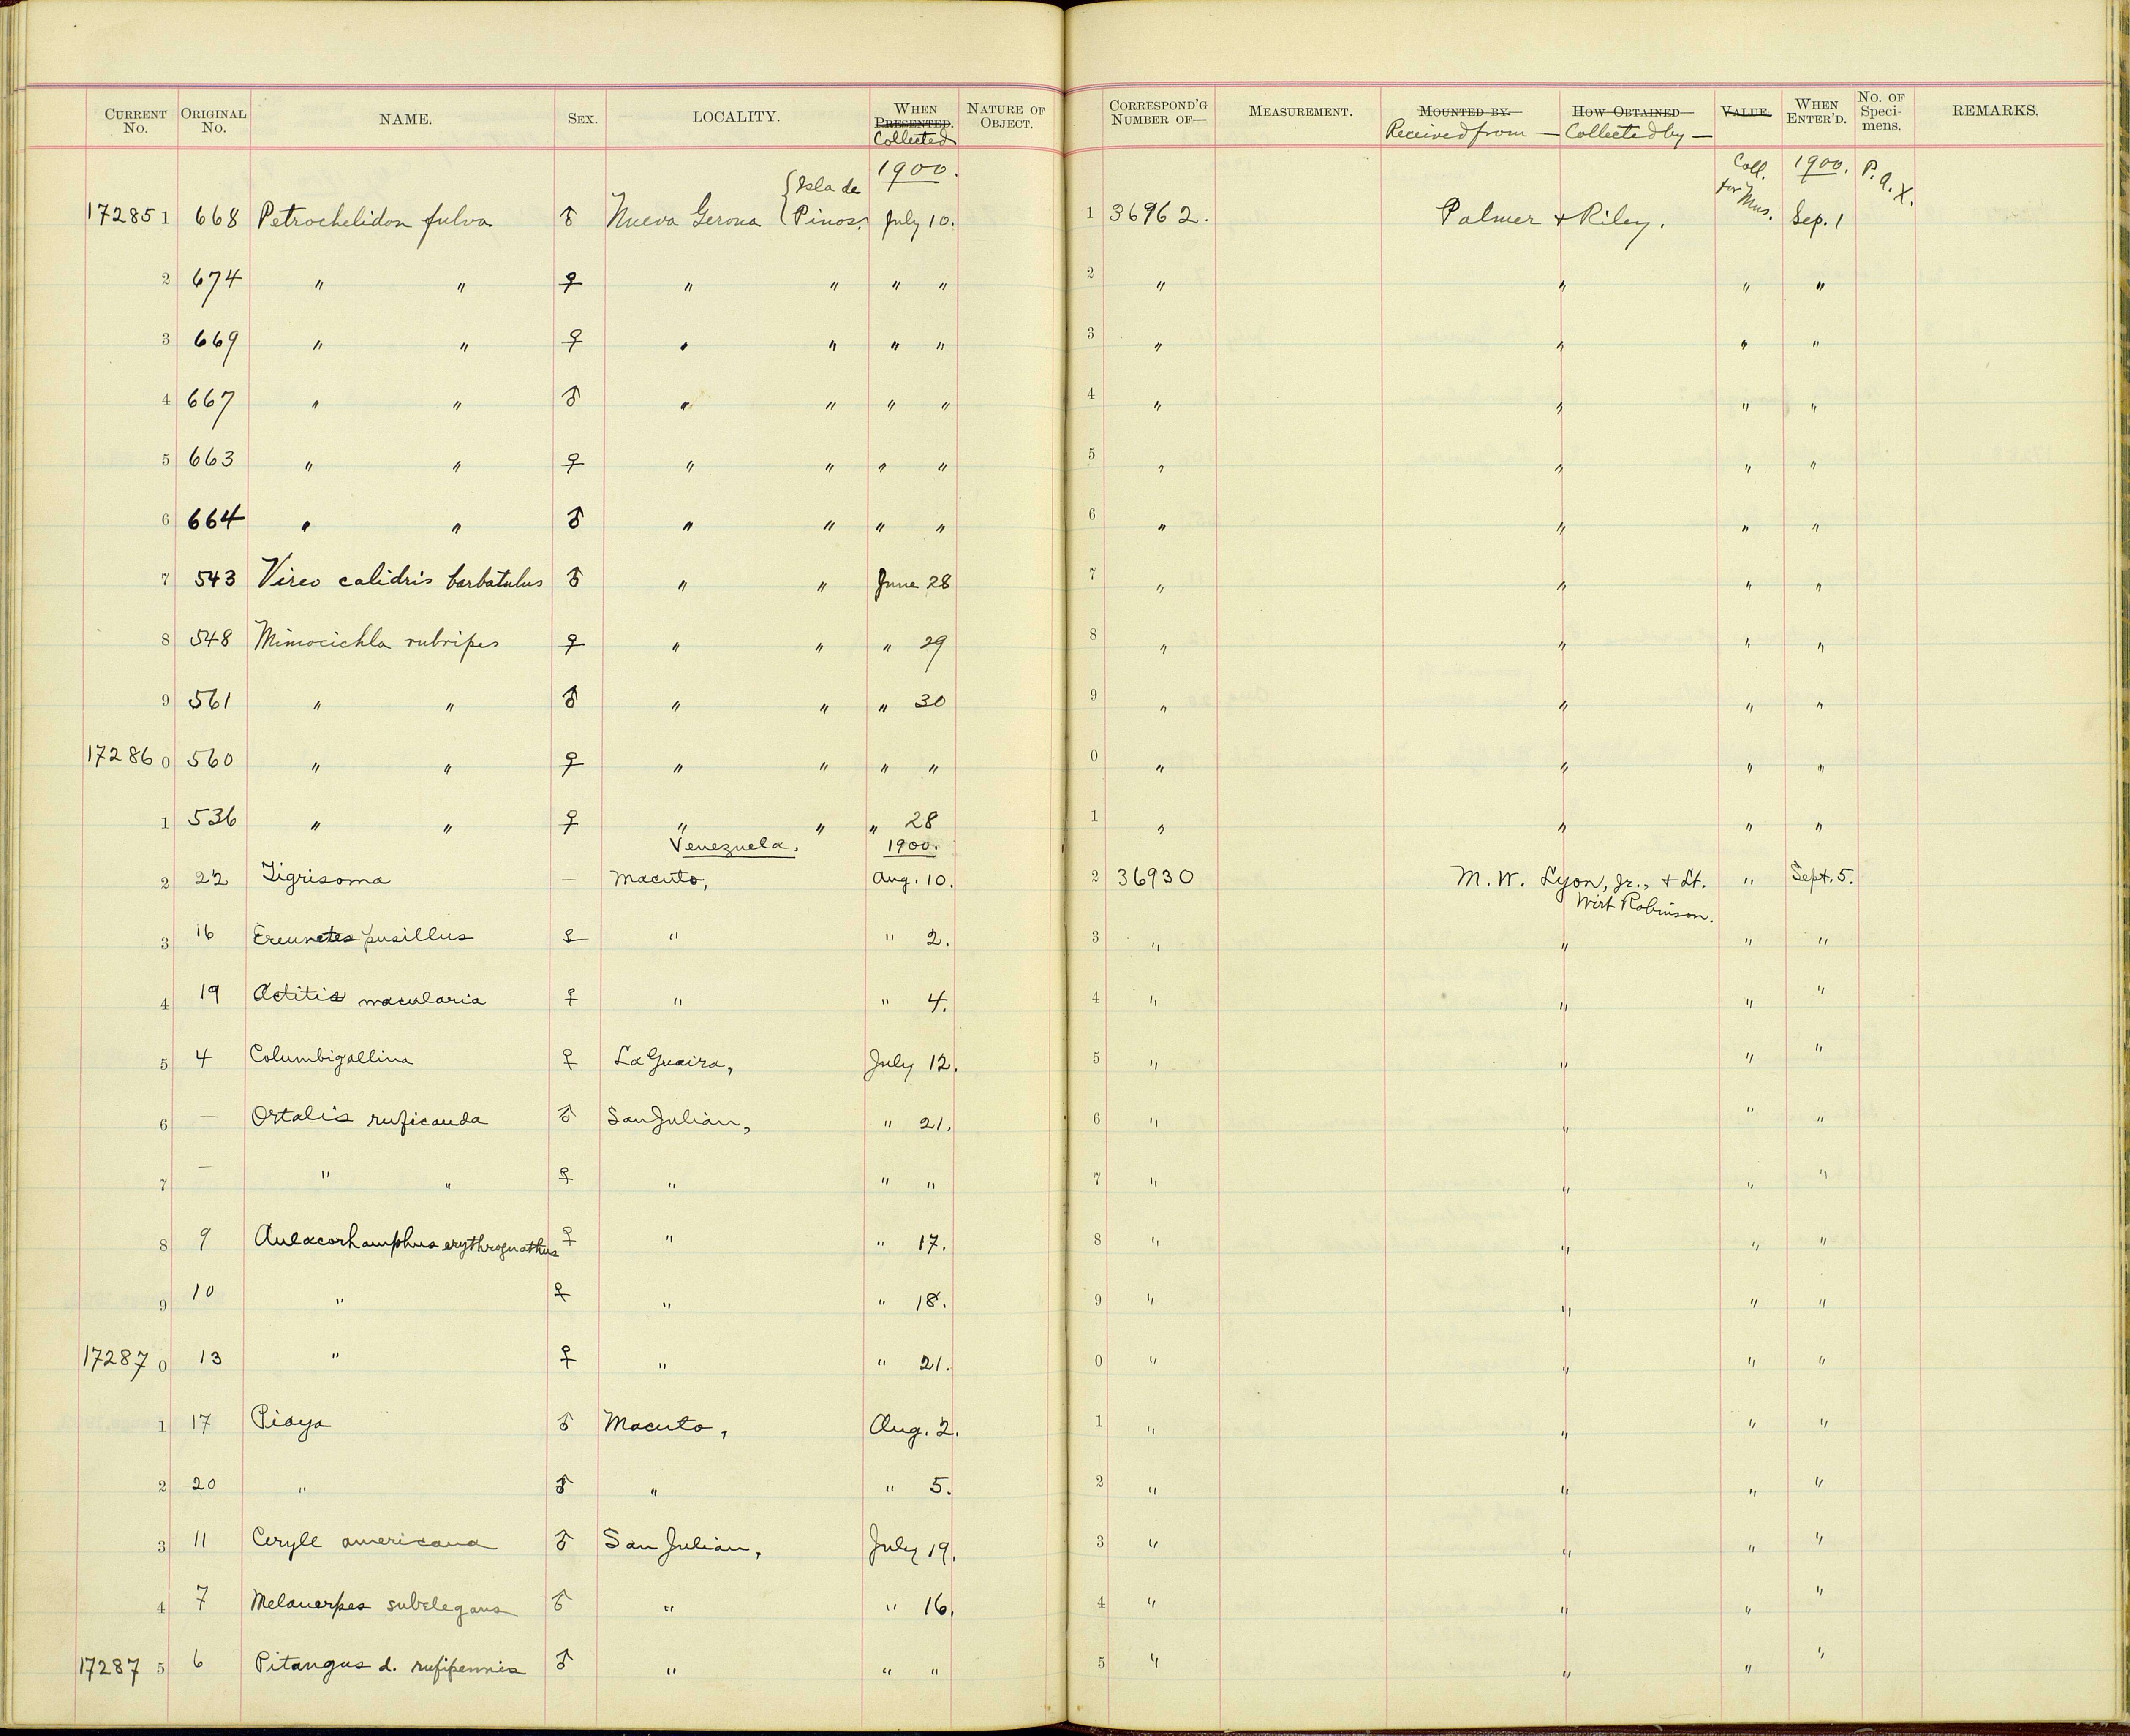 CURRENT No. ORIGINAL No. NAME. SEX. LOCALITY. WHEN PRESENTED. Collected NATURE OF OBJECT. CORRESPOND'G NUMBER OF— MEASUREMENT. MOUNTED BY- Received from — HOW OBTAINED- Collected by — VALUE. WHEN ENTER'D. No. OF Specimens. REMARKS.
1900. Coll. for Mus. 1900. P. a. X.
172851 668 Petrochelidon fulva ♂ Nueva Gerona {Isla de Pinos. July 10. 1 36962. Palmer + Riley. Sep. 1
2 674 " " ♀ " " " " 2 " " " "
3 669 " " ♀ " " " " 3 " " " "
4 667 " " ♂ " " " " 4 " " " "
5 663 " " ♀ " " " " 5 " " " "
6 664 " " ♂ " " " " 6 " " " "
7 543 Vireo calidris barbatulus ♂ " " June 28 7 " " " "
8 548 Mimocichla rubripes ♀ " " " 29 8 " " " "
9 561 " " ♂ " " " 30 9 " " " "
172860 560 " " ♀ " " " " 0 " " " "
1 536 " " ♀ " " " 28 1 " " " "
Venezuela. 1900.
2 22 Tigrisoma — Macuto, Aug. 10. 2 36930 M. W. Lyon, Jr., + Lt. Wirt Robinson. " Sept. 5.
3 16 Ereunetes pusillus ♀ " " 2. 3 " " " "
4 19 Actitis macularia ♀ " " 4. 4 " " " "
5 4 Columbigallina ♀ La Guaira, July 12. 5 " " " "
6 — Ortalis ruficauda ♂ San Julian, " 21. 6 " " " "
7 — " " ♀ " " " 7 " " " "
8 9 Aulacorhamphus erythrognathus ♀ " " 17. 8 " " " "
9 10 " ♀ " " 18. 9 " " " "
172870 13 " ♀ " " 21. 0 " " " "
1 17 Piaya ♂ Macuto, Aug. 2. 1 " " " "
2 20 " ♂ " " 5. 2 " " " "
3 11 Ceryle americana ♂ San Julian, July 19. 3 " " " "
4 7 Melanerpes subelegans ♂ " " 16. 4 " " " "
172875 6 Pitangus d. rufipennis ♂ " " " 5 " " " "